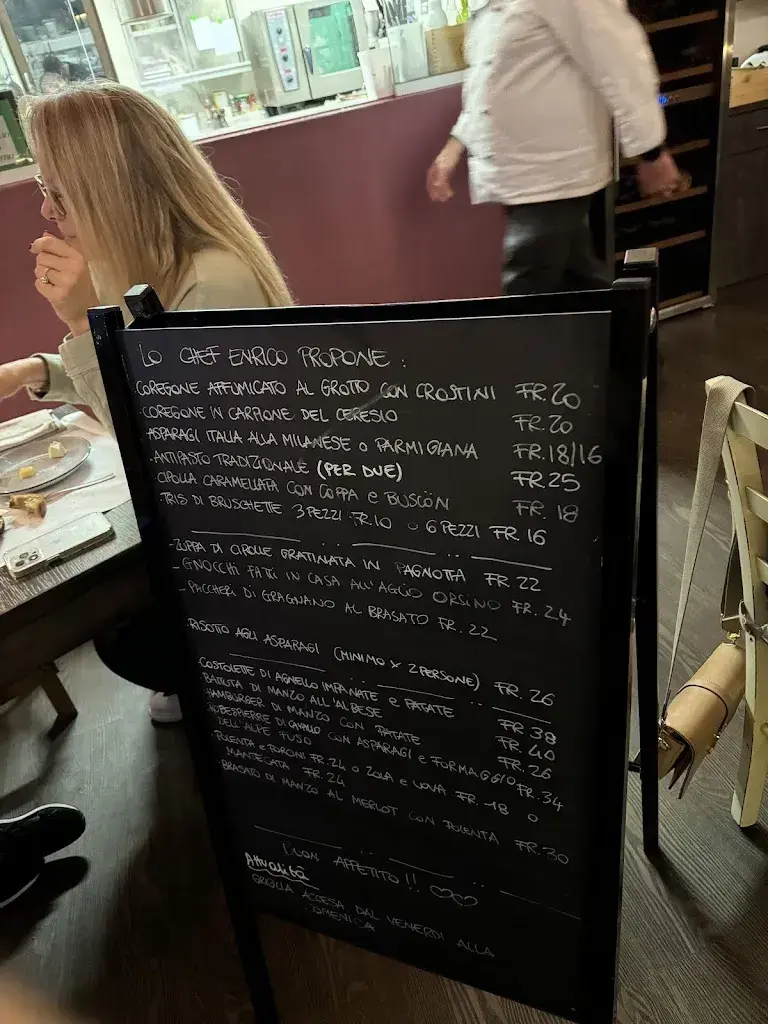 LO CHEF ENRICO PROPONE :
COREGONE AFFUMICATO AL GROTTO CON CROSTINI FR. 20
COREGONE IN CARPIONE DEL CERESIO FR. 20
ASPARAGI ITALIA ALLA MILANESE O PARMIGIANA FR. 18/16
ANTIPASTO TRADIZIONALE (PER DUE) FR. 25
CIPOLLA CARAMELLATA CON COPPA e BUSCÖN FR. 18
TRIS DI BRUSCHETTE 3 PEZZI FR.10 O 6 PEZZI FR. 16
- ZUPPA DI CIPOLLE GRATINATA IN PAGNOTTA FR. 22
- GNOCCHI FATTI IN CASA ALL'AGLIO ORSINO FR. 24
- PACCHERI DI GRAGNANO AL BRASATO FR. 22
RISOTTO AGLI ASPARAGI (MINIMO X 2 PERSONE) FR. 26
COSTOLETTE DI AGNELLO IMPANATE e PATATE FR. 38
BATTUTA DI MANZO ALL'ALBESE FR. 40
HAMBURGER DI MANZO CON PATATE FR. 26
ROBESPIERRE DI CAVALLO CON ASPARAGI e FORMAGGIO FR. 34
DELL'ALPE FUSO
POLENTA e PORCINI FR. 24 O ZOLA e UOVA FR. 18 O
MANTECATA FR. 24
BRASATO DI MANZO AL MERLOT CON POLENTA FR. 30
BUON APPETITO !!
Attualità
GRIGLIA ACCESA DAL VENERDI ALLA
DOMENICA